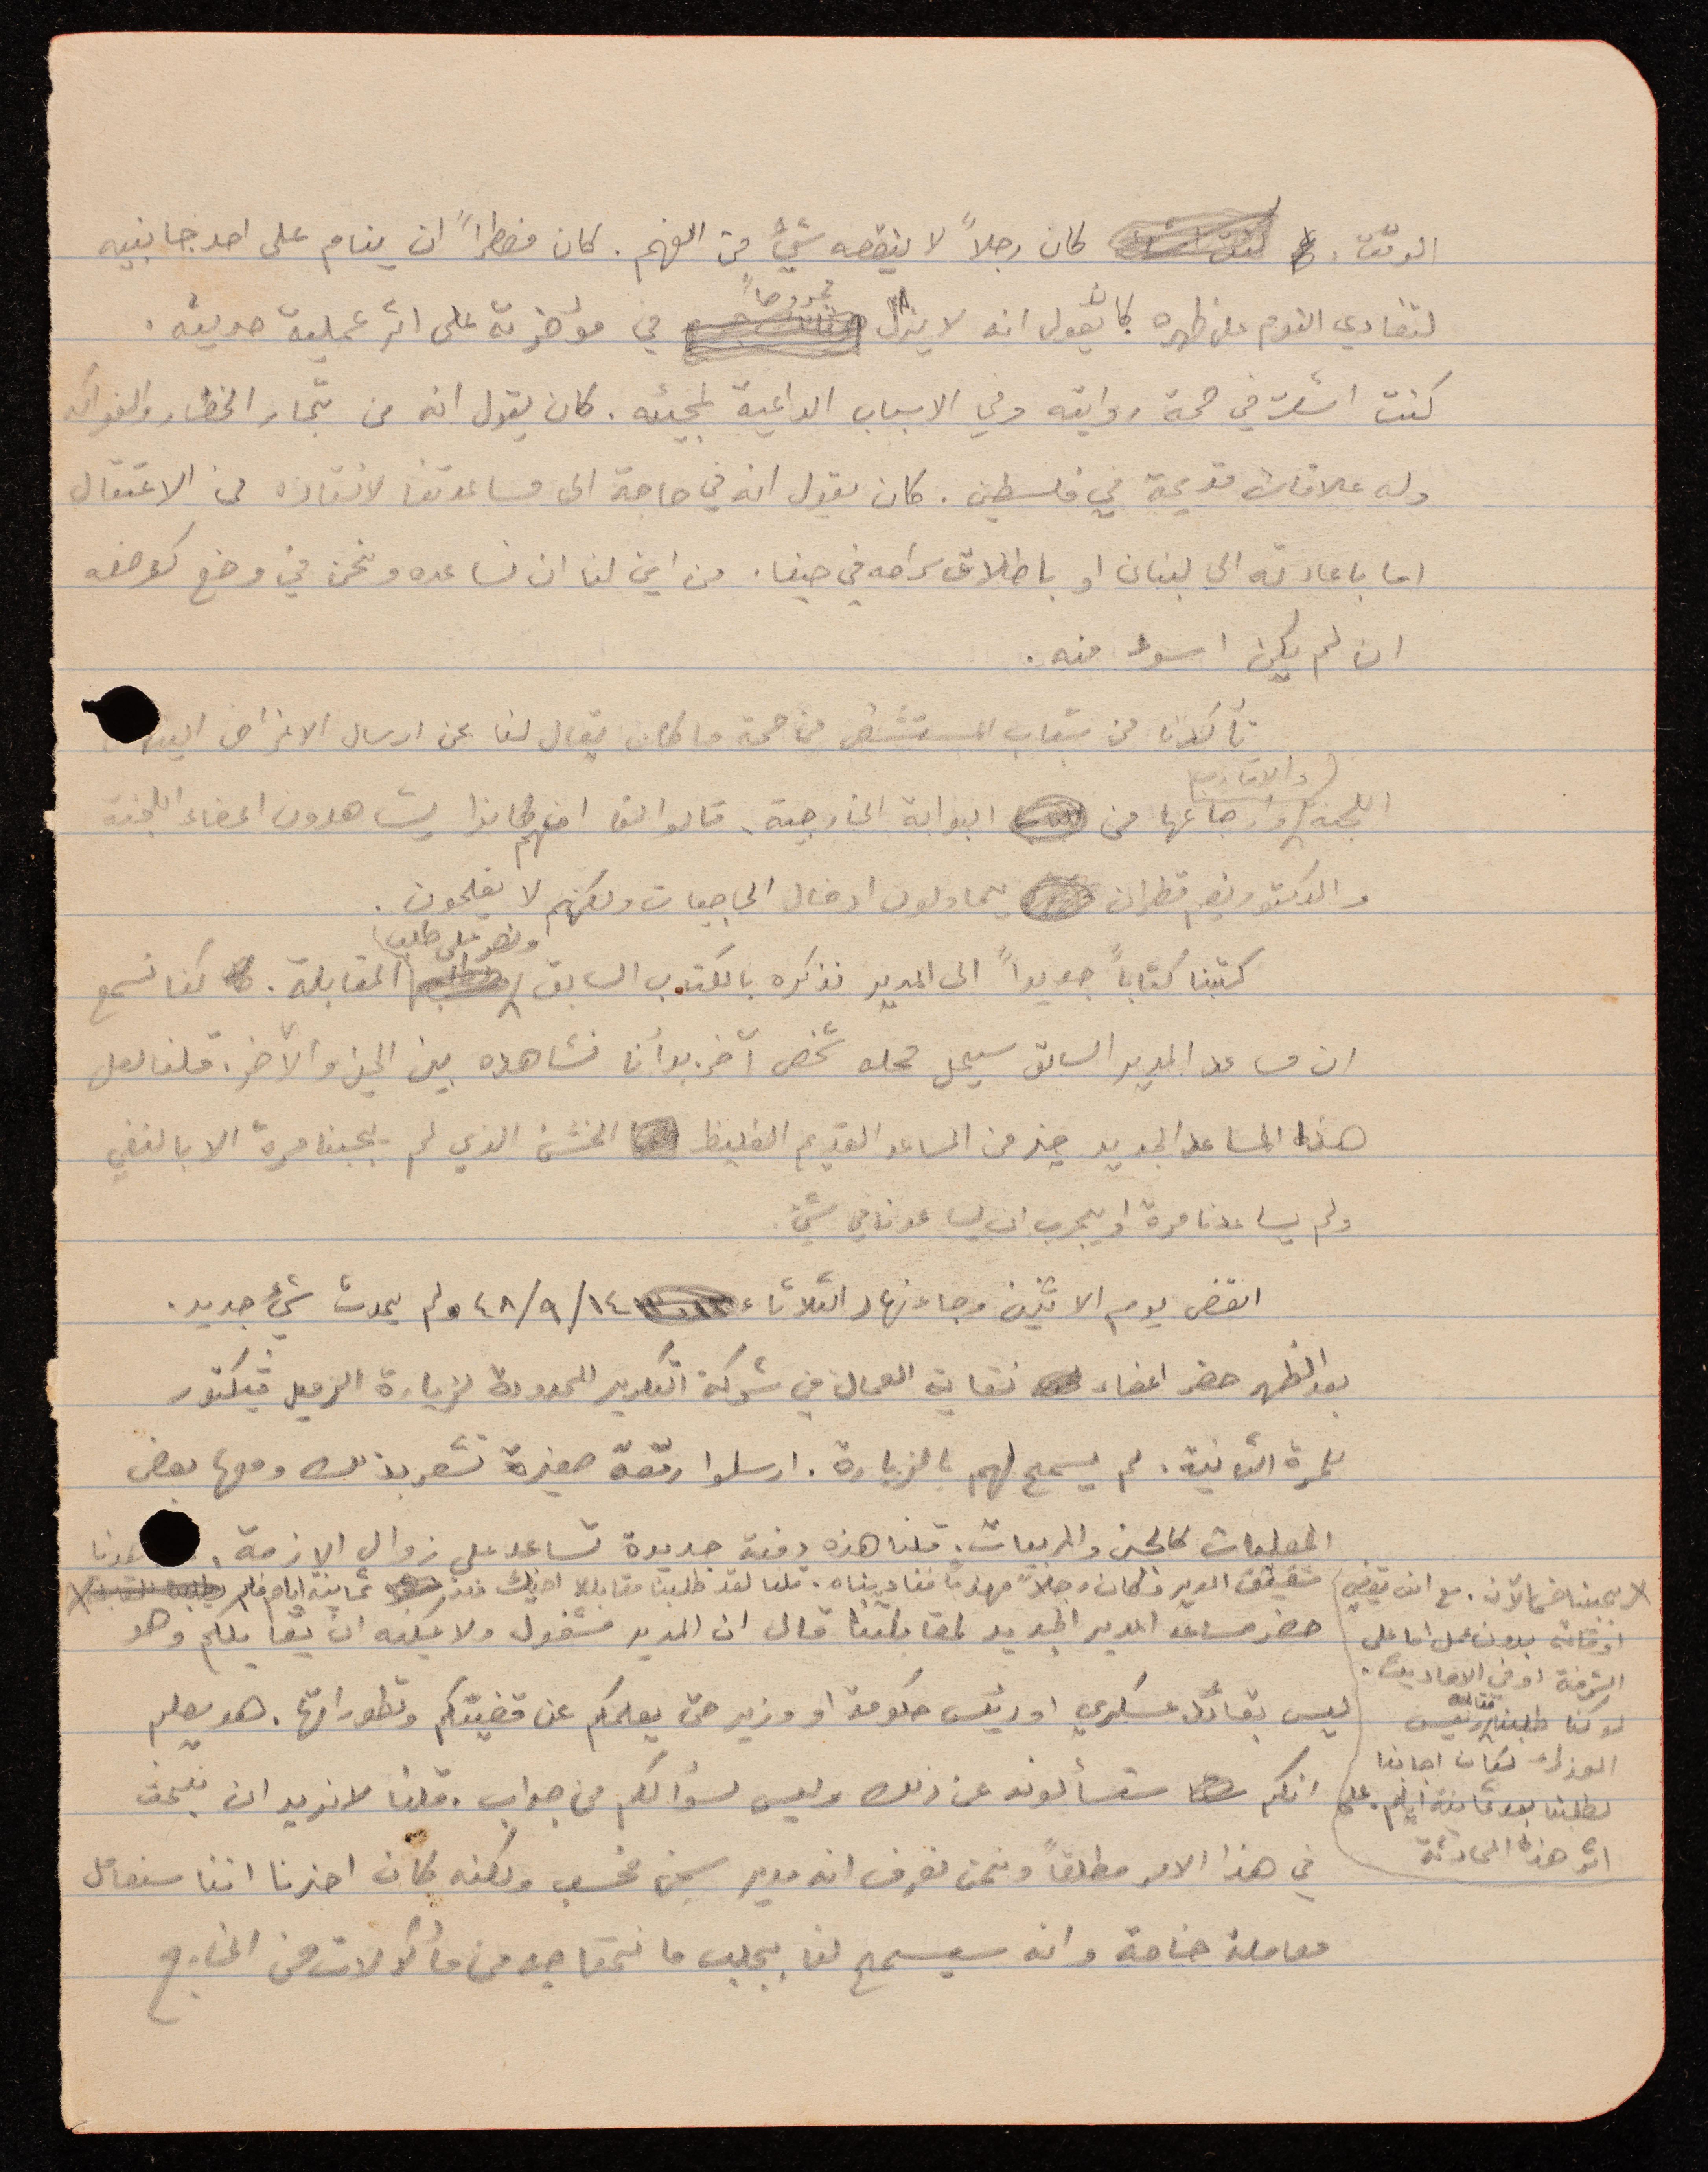 الوقت. كان رجلاً لا ينقصه شيء من الفهم. كان مضطراً ان ينام على احد جانبيه
لتفادي النوم على ظهره كان يقول انه لا يزال مجروحاً في مؤخرته على اثر عملية حديثة.
كنت اشك في صحة روايته وفي الاسباب الداعية لمجيئه. كان يقول انه من تجار الخضار والفواكه
وله علاقات قديمة في فلسطين. كان يقول انه في حاجة الى مساعدتنا لانقاذه من الاعتقال
اما باعادته الى لبنان او باطلاق سراحه في حيفا. من اين لنا ان نساعده ونحن في وضع كوضعه
ان لم يكن اسوء منه.
تأكدنا من شباب المستشفى من صحة ما كان يقال لنا عن ارسال الاغراض الينا من
(والاقارب)
اللجنة وارجاعها من البوابة الخارجية. قالوا لنا انهم كانوا يشاهدون اعضاء اللجنة
والدكتور نعيم قطران يحاولون ادخال الحاجيات ولكنهم لا يفلحون.
كتبنا كتاباً جديداً الى المدير نذكره بالكتاب السابق ونصر على طلب المقابلة. كنا نسمع
ان مساعد المدير السابق سيحل محله شخص آخر. بدأنا نشاهده بين الحين والآخر. قلنا لعل
هذا المساعد الجديد خير من المساعد القديم الغليظ الخشن الذي لم يجبنا مرة الا بالنفي
ولم يساعدنا مرة او يجرب ان يساعدنا في شيء.
انقضى يوم الاثنين وجاء نهار الثلاثاء ١٤/٩/٤٨ ولم يحدث شيء جديد.
بعد الظهر حضر اعضاء نقابة العمال في شركة التكرير المحدودة لزيارة الزميل ڤيكتور
للمرة الثانية. لم يسمح لهم بالزيارة. ارسلوا رقعة صغيرة تشعر بذلك ومعها بعض
المعلبات كالجبن والمربيات. قلنا هذه دفعة جديدة تساعد على زوال الازمة.
شقيق المدير وكان رجلاً مهذباً فناديناه. قلنا لقد طلبنا مقابلة اخيك منذ ثمانية ايام فلم
يجبنا حتى الآن. مع انه يقضي
اوقاته بدون عمل اما على
الشرفة او في الاحاديث.
لو كنا طلبنا مقابلة رئيس
الوزراء لكان اجابنا
لطلبنا بعد ثمانية ايام. على
اثر هذه المحادثة
حضر مساعد المدير الجديد لمقابلتنا قال ان المدير مشغول ولا يمكنه ان يقابلكم وهو
ليس بقائد عسكري او رئيس حكومة او وزير حتى يعلمكم عن قضيتكم وتطوراتها. هو يعلم
انكم ستسألونه عن ذلك وليس لسؤالكم من جواب. قلنا لا نريد ان نبحث
في هذا الامر مطلقاً ونحن نعرف انه مدير سجن فحسب ولكنه كان اخبرنا اننا سنعامل
معاملة خاصة وانه سيسمح لنا بجلب ما نحتاجه من مأكولات من الخارج